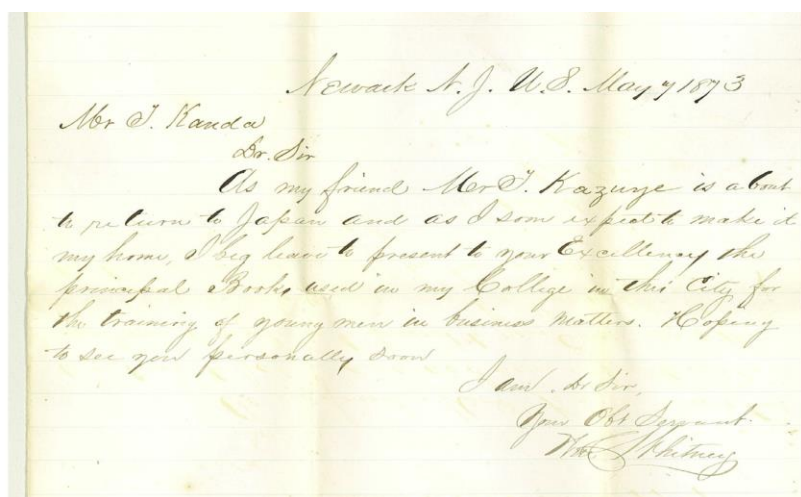 Newark N. J. U. S. May 7 1873
Mr T. Kanda
Dr. Sir
As my friend Mr T. Kazuye is about
to return to Japan and as I soon expect to make it
my home, I beg leave to present to your Excellency the
principal Books used in my College in this City for
the training of young men in business matters. Hoping
to see you personally soon
I am. Dr Sir,
Your Obt Servant.
Wm C Whitney